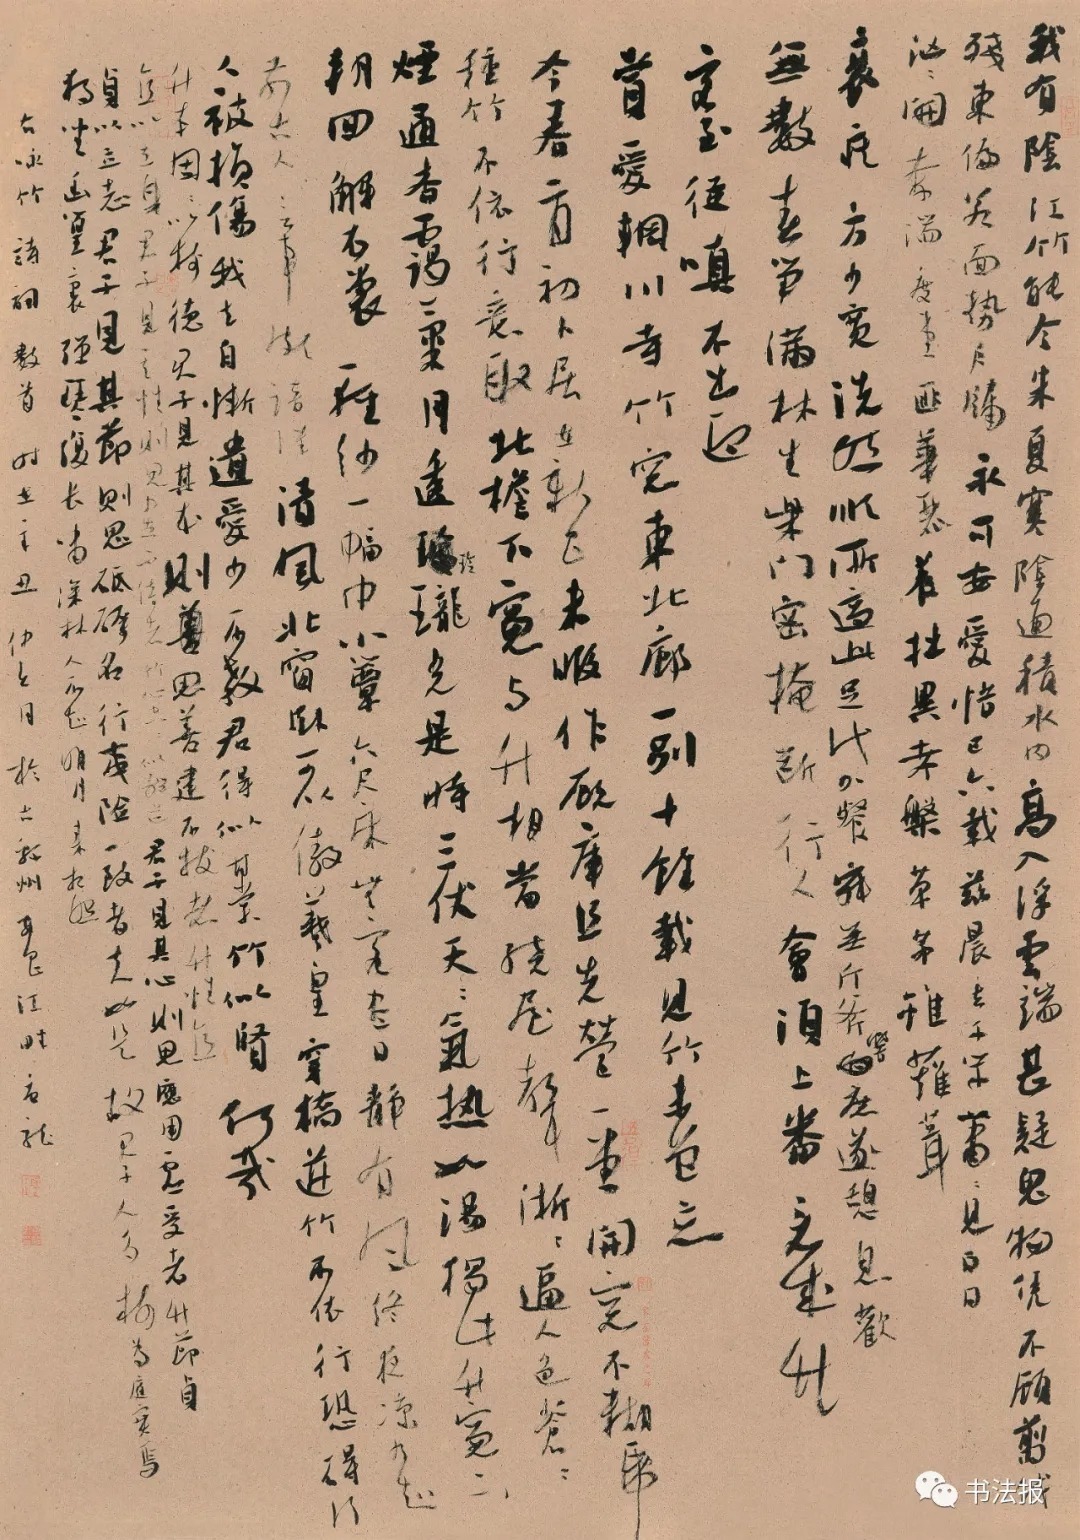 我有陰江竹能令朱夏寒陰通積水內高入浮雲端甚疑鬼物憑不顧剪伐
殘東偏若面勢戶牖永可安愛惜已六載茲晨去千竿蕭〻見白日
洶〻開奔湍度堂匪華麗養拙異考槃草茅雖薙葺
衰疾方少寬洗然順所適此足代加餐寂無斤斧響庶遂憩息歡
無數春笋滿林生柴門密掩斷行人會須上番看成竹
客至從嗔不出迎
昔愛輞川寺竹窓東北廊一別十餘載見竹未曾忘
今春二月初卜居在新昌未暇作厩庫且先營一堂開窓不糊紙
種竹不依行意取北檐下窓與竹相當繞屋聲淅〻逼人色蒼〻
煙通杳靄氣月透玲瓏光是時三伏天〻氣熱如湯獨此竹窓下
朝回解衣裳一種紗一幅巾小簟六尺床無客盡日靜有風終夜涼乃知
前古人言事頗諳詳清風北窗臥可以傲羲皇穿橋莚竹不依行恐碍行
人被損傷我去自慚遺愛少不教君得似甘棠竹似賢何哉
竹本固〻以樹德君子見其本則思善建不拔者竹性直
直以立身君子見其性則思中立不倚者竹心空〻以體道君子見其心則思應用虛受者竹節貞
貞以立志君子見其節則思砥礪名行夷險一致者夫如是故君子人多樹為庭實焉
獨坐幽篁裏彈琴復長嘯深林人不知明月來相照
右詠竹詩詞數首時在辛丑仲冬月於古敘州江畔
书法报